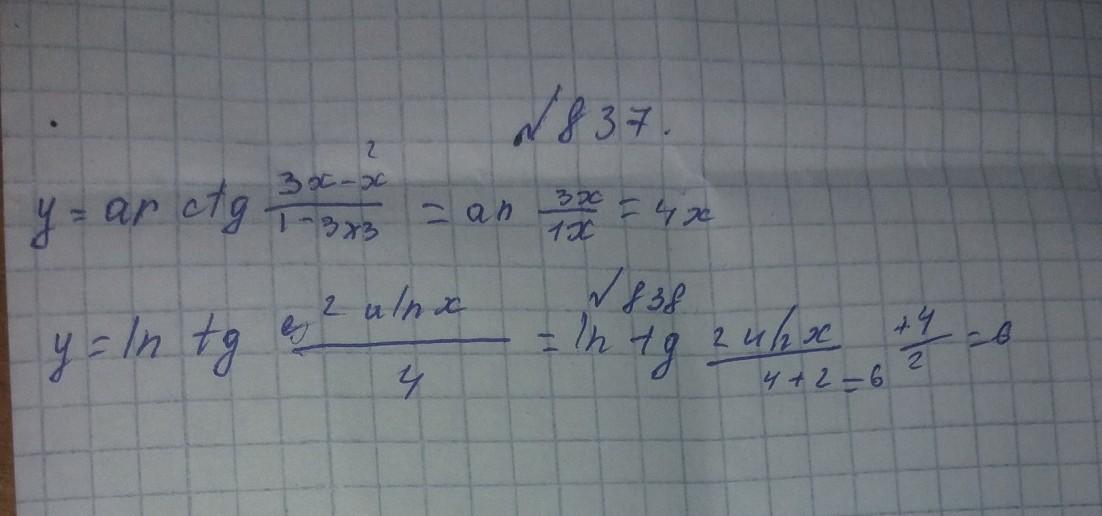 № 837.
y = arctg (3x - x²)/(1 - 3x3) = an 3x/1x = 4x
№ 838
y = ln tg (e, 2 sin x)/4 = ln tg (2 sin x)/(4 + 2 = 6) (+4)/2 = 6